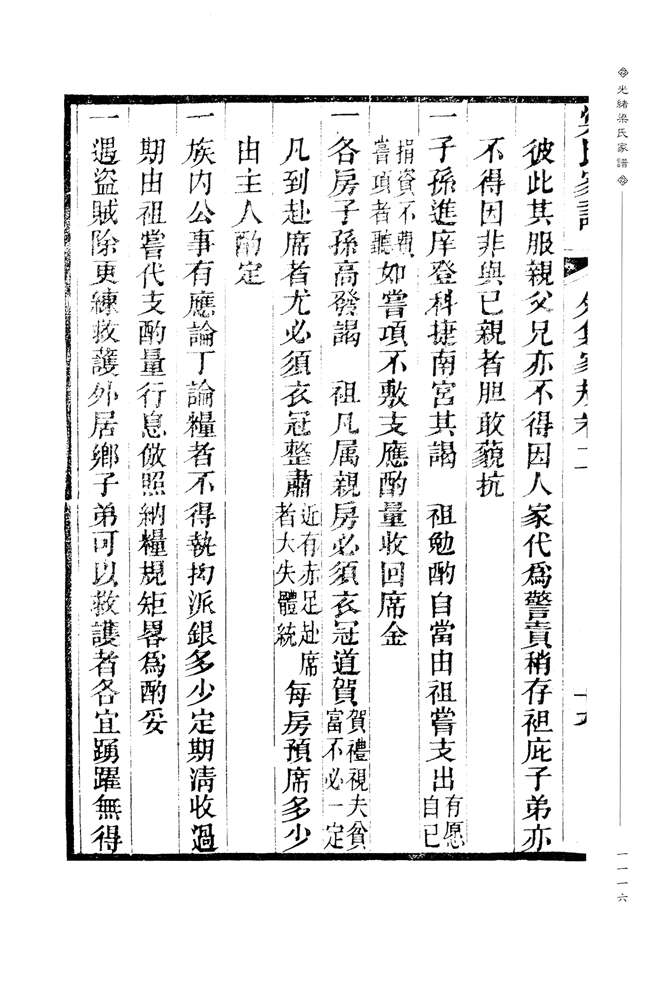 光緒梁氏家譜
一一一六
彼此其服親父兄亦不得因人家代爲警責稍存袒庇子弟亦
不得因非與已親者胆敢藐抗
一子孫進庠登科捷南宮其謁　祖勉酌自當由祖嘗支出有愿自已
捐資不費嘗項者聽如嘗項不敷支應酌量收回席金
一各房子孫高發謁　祖凡属親房必須衣冠道賀賀禮視夫貧富不必一定
凡到赴席者尤必須衣冠整肅近有赤足赴席者大失體統每房預席多少
由主人酌定
一族内公事有應論丁論糧者不得執拘派銀多少定期清收過
期由祖嘗代支酌量行息倣照納糧規矩畧爲酌妥
一遇盜賊除更練救護外居鄉子弟可以救護者各宜踴躍無得